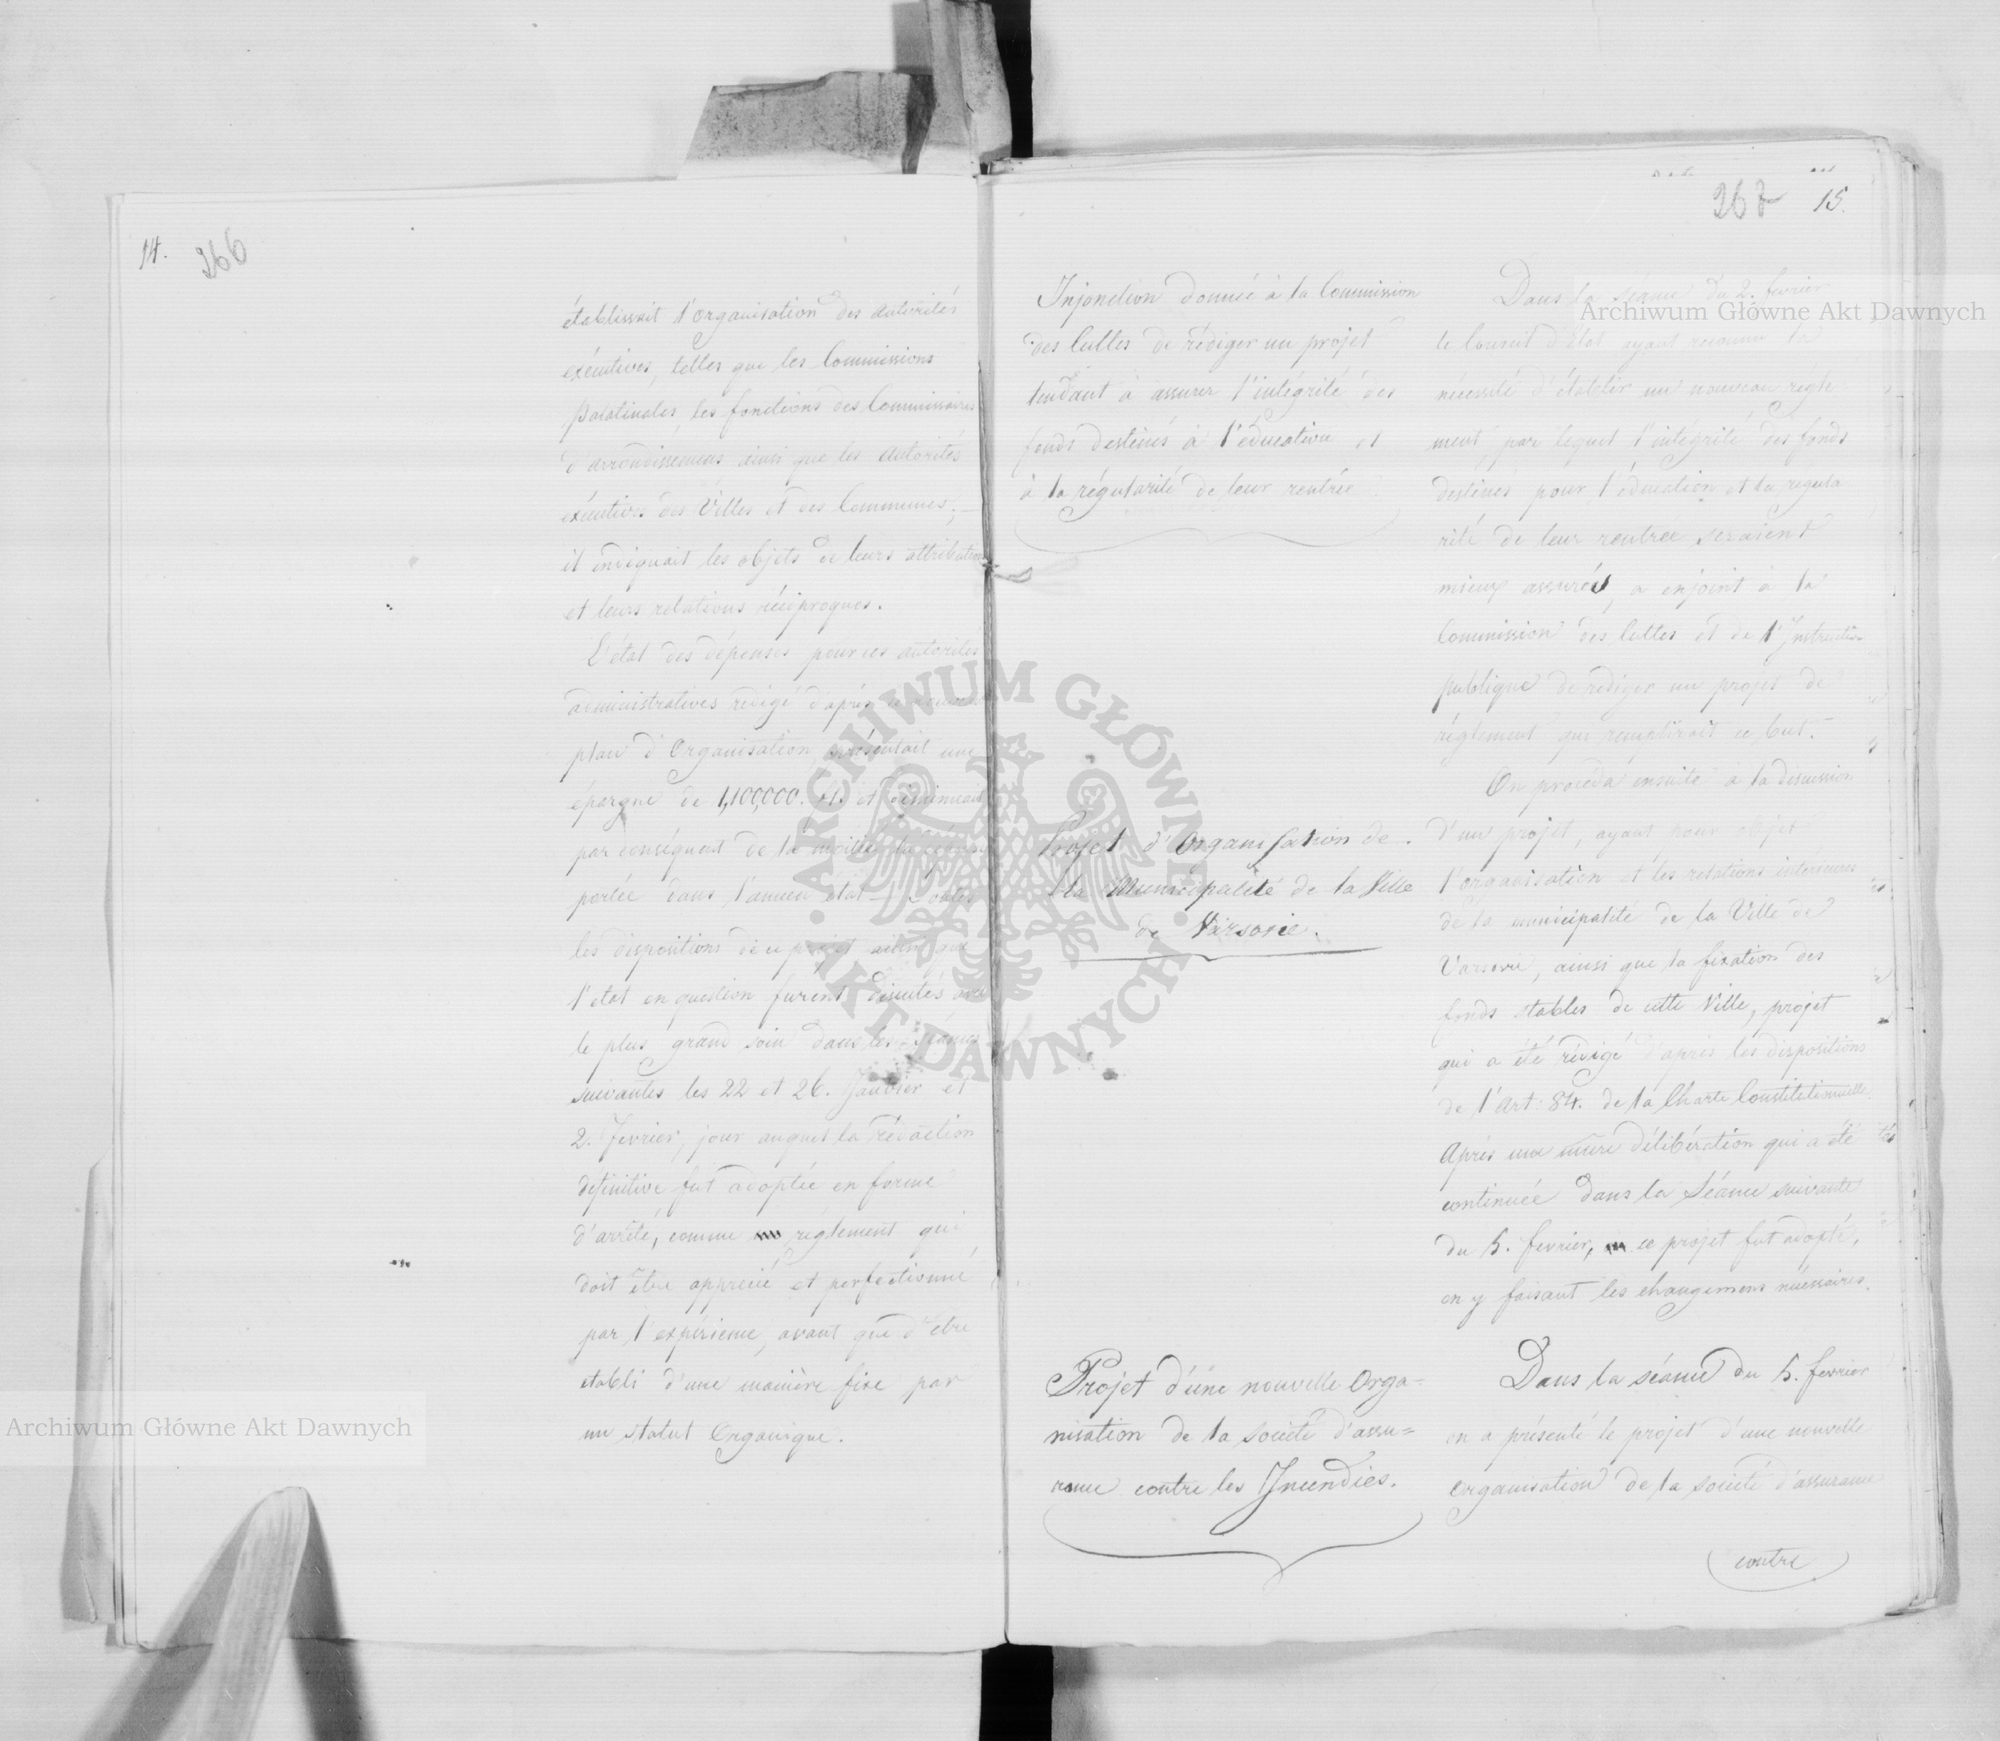 14. 266
établissait l'organisation des autorités
exécutives, telles que les Commissions
palatinales, les fonctions des Commissaires
d'arrondissemens ainsi que les autorités
exécutives des Villes et des Communes;
il indiquait les objets de leurs attributions
et leurs relations réciproques.
L'état des dépenses pour ces autorités
administratives rédigé d'après ce nouveau
plan d'Organisation, présentait une
épargne de 1,100,000. fl. et diminuait
par conséquent de la moitié la dépense
portée dans l'ancien état. Toutes
les dispositions de ce projet ainsi que
l'état en question furent discutés avec
le plus grand soin dans les séances
suivantes les 22 et 26. Janvier et
2. fevrier, jour auquel la rédaction
définitive fut adoptée en forme
d'arrêté, comme règlement qui
doit être apprecié et perfectionné
par l'expérience, avant que d'être
établi d'une manière fixe par
un statut Organique.
267 15.
Injonction donnée à la Commission
des Cultes de rédiger un projet
tendant à assurer l'intégrité des
fonds destinés à l'éducation et
à la régularité de leur rentrée
Dans la séance du 2. fevrier
le Conseil d'état ayant reconnu la
nécessité d'établir un nouveau regle
ment, par lequel l'intégrité des fonds
destinés pour l'éducation et la régula
rité de leur rentrée seraient
mieux assurés, a enjoint à la
Commission des Cultes et de l'Instruction
publique de rediger un projet de
réglement qui remplirait ce but.
Projet d'Organisation de
la Municipalité de la Ville
de Varsovie.
On proceda ensuite à la discussion
d'un projet, ayant pour objet
l'organisation et les relations intérieures
de la municipalité de la Ville de
Varsovie, ainsi que la fixation des
fonds stables de cette Ville, projet
qui a été rédigé d'après les dispositions
de l'Art: 84. de la Charte Constitutionnelle.
Après une mure délibération qui a été
continuée dans la Séance suivante
du 5. fevrier, ce projet fut adopté,
en y faisant les changemens nécessaires.
Projet d'une nouvelle Orga=
nisation de la société d'assu=
rance contre les Incendies.
Dans la séance du 5. fevrier
on a présenté le projet d'une nouvelle
organisation de la société d'assurance
contre
Archiwum Główne Akt Dawnych
Archiwum Główne Akt Dawnych
ARCHIWUM GŁÓWNE AKT DAWNYCH